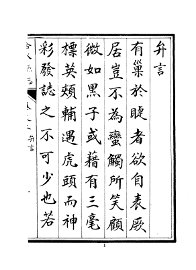 弁言
有巢於睫者欲自表厥
居豈不為蠻觸所笑顧
微如黑子或藉有三毫
標英頰輔遇虎頭而神
彩發誌之不可少也若